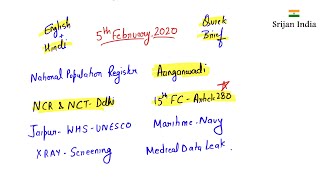 English
+
Hindi
5th February, 2020
Quick
Brief
Srijan India
National Population Register
Aanganwadi
NCR & NCT - Delhi
15th FC - Article 280
Jaipur - WHS - UNESCO
Maritime - Navy
XRAY - Screening
Medical Data Leak.